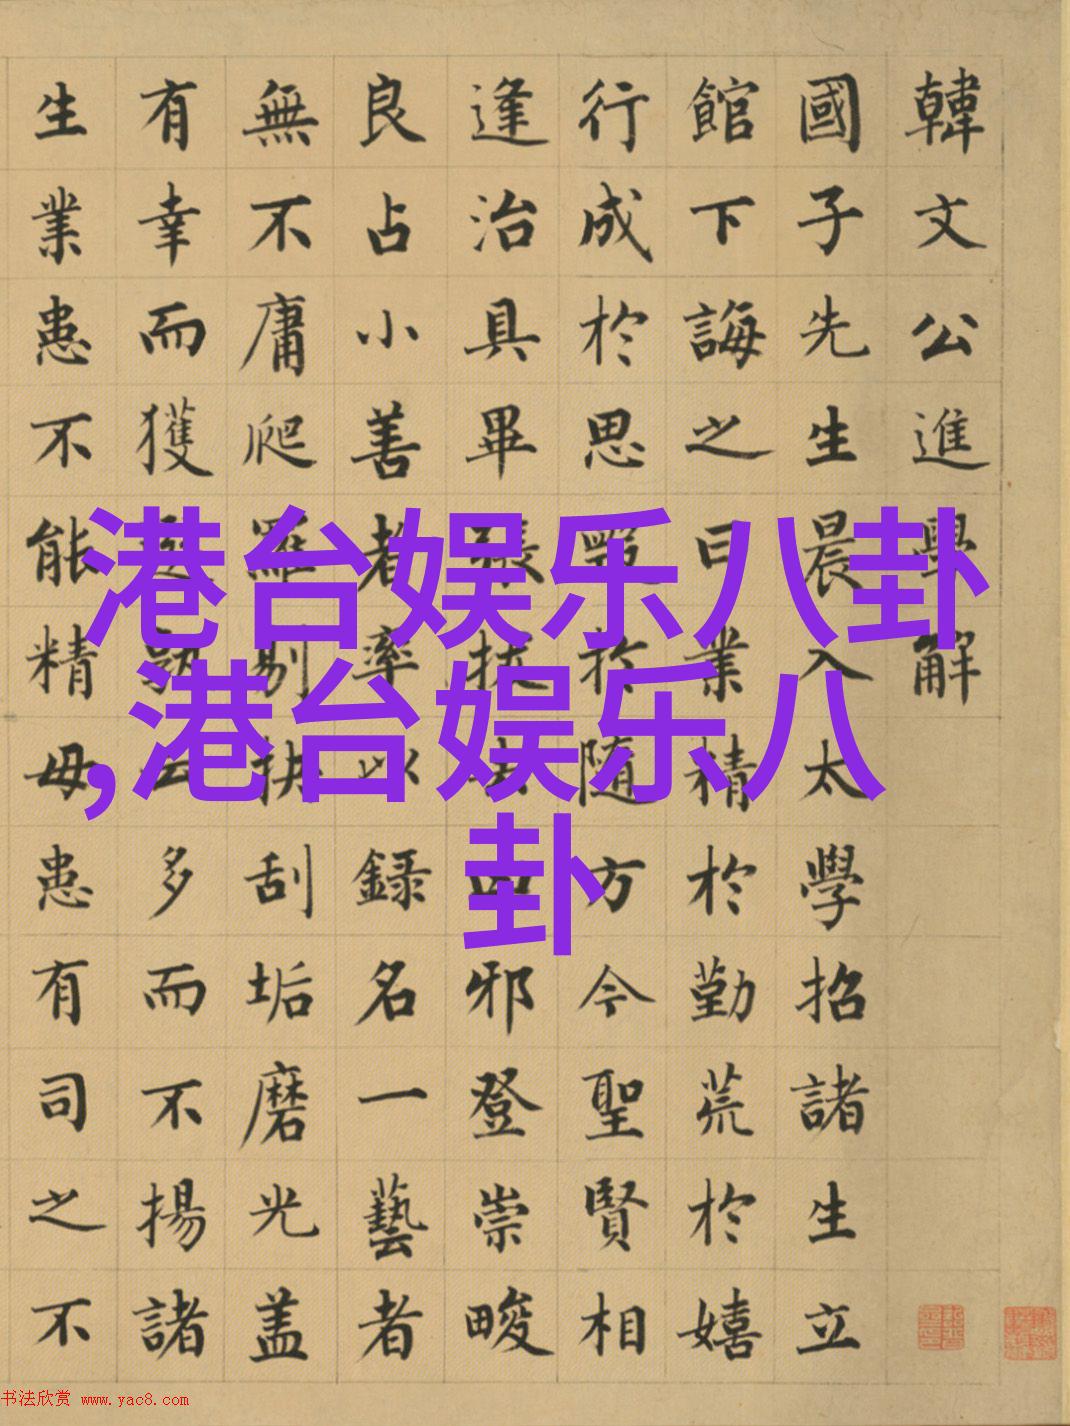 韓文公進學解
國子先生晨入太學招諸生立
館下誨之曰業精於勤荒於嬉
行成於思毀於隨方今聖賢相
逢治具畢張拔去凶邪登崇畯
良占小善者率以錄名一藝者
無不庸爬羅剔抉刮垢磨光盖
有幸而獲選孰云多而不揚諸
生業患不能精毋患有司之不
港台娱乐八卦
,港台娱乐八
卦
书法欣赏 www.yac8.com